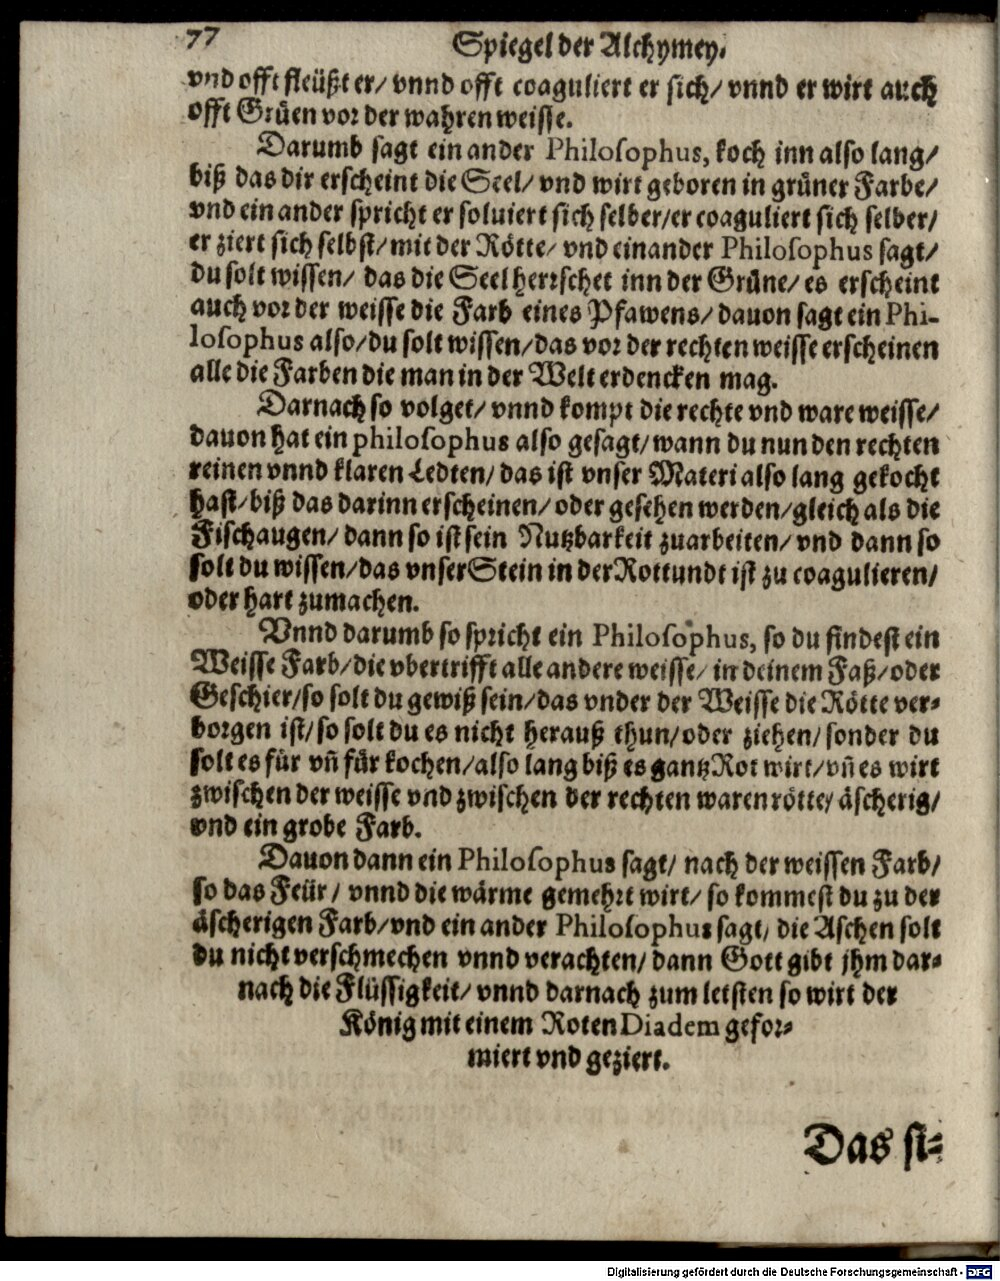 77
Spiegel der Alchymey.
vnd offt fleüßt er/ vnnd offt coaguliert er sich/ vnnd er wirt auch
offt Grüen vor der wahren weisse.
Darumb sagt ein ander Philosophus, koch inn also lang/
biß das dir erscheint die Seel/ vnd wirt geboren in grüner Farbe/
vnd ein ander spricht er soluiert sich selber/ er coaguliert sich selber/
er ziert sich selbst/ mit der Rötte/ vnd einander Philosophus sagt/
du solt wissen/ das die Seel herrschet inn der Grüne/ es erscheint
auch vor der weisse die Farb eines Pfawens/ dauon sagt ein Phi-
losophus also/ du solt wissen/ das vor der rechten weisse erscheinen
alle die Farben die man in der Welt erdencken mag.
Darnach so volget/ vnnd kompt die rechte vnd ware weisse/
dauon hat ein philosophus also gesagt/ wann du nun den rechten
reinen vnnd klaren Ledten/ das ist vnser Materi also lang gekocht
hast/ biß das darinn erscheinen/ oder gesehen werden/ gleich als die
Fischaugen/ dann so ist sein Nutzbarkeit zuarbeiten/ vnd dann so
solt du wissen/ das vnser Stein in der Rottundt ist zu coagulieren/
oder hart zumachen.
Vnnd darumb so spricht ein Philosophus, so du findest ein
Weisse Farb/ die vbertrifft alle andere weisse/ in deinem Faß/ oder
Geschier/ so solt du gewiß sein/ das vnder der Weisse die Rötte ver-
borgen ist/ so solt du es nicht herauß thun/ oder ziehen/ sonder du
solt es für vñ für kochen/ also lang biß es gantz Rot wirt/ vñ es wirt
zwischen der weisse vnd zwischen der rechten waren rötte/ äscherig/
vnd ein grobe Farb.
Dauon dann ein Philosophus sagt/ nach der weissen Farb/
so das Feür/ vnnd die wärme gemehrt wirt/ so kommest du zu der
äscherigen Farb/ vnd ein ander Philosophus sagt/ die Aschen solt
du nicht verschmechen vnnd verachten/ dann Gott gibt jhm dar-
nach die Flüssigkeit/ vnnd darnach zum letsten so wirt der
König mit einem Roten Diadem gefor-
miert vnd geziert.
Das si-
Digitalisierung gefördert durch die Deutsche Forschungsgemeinschaft - DFG